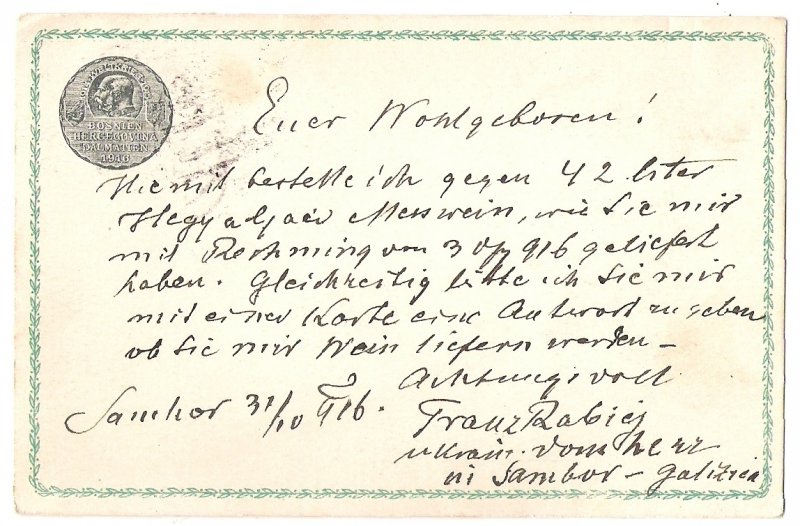 IM WELTKRIEGE
BOSNIEN
HERCEGOVINA
DALMATIEN
1916
Euer Wohlgeboren!
Hiemit bestelle ich gegen 42 liter
Hegyaljaer Messwein, wie Sie mir
mit Rechnung von 3 916 geliefert
haben. Gleichzeitig bitte ich Sie mir
mit einer Karte eine Antwort zu geben
ob Sie mir Wein liefern werden –
Achtungsvoll
Sambor 31/10 916. Franz Rabiej
ukrain. Domherr
in Sambor – Galizien